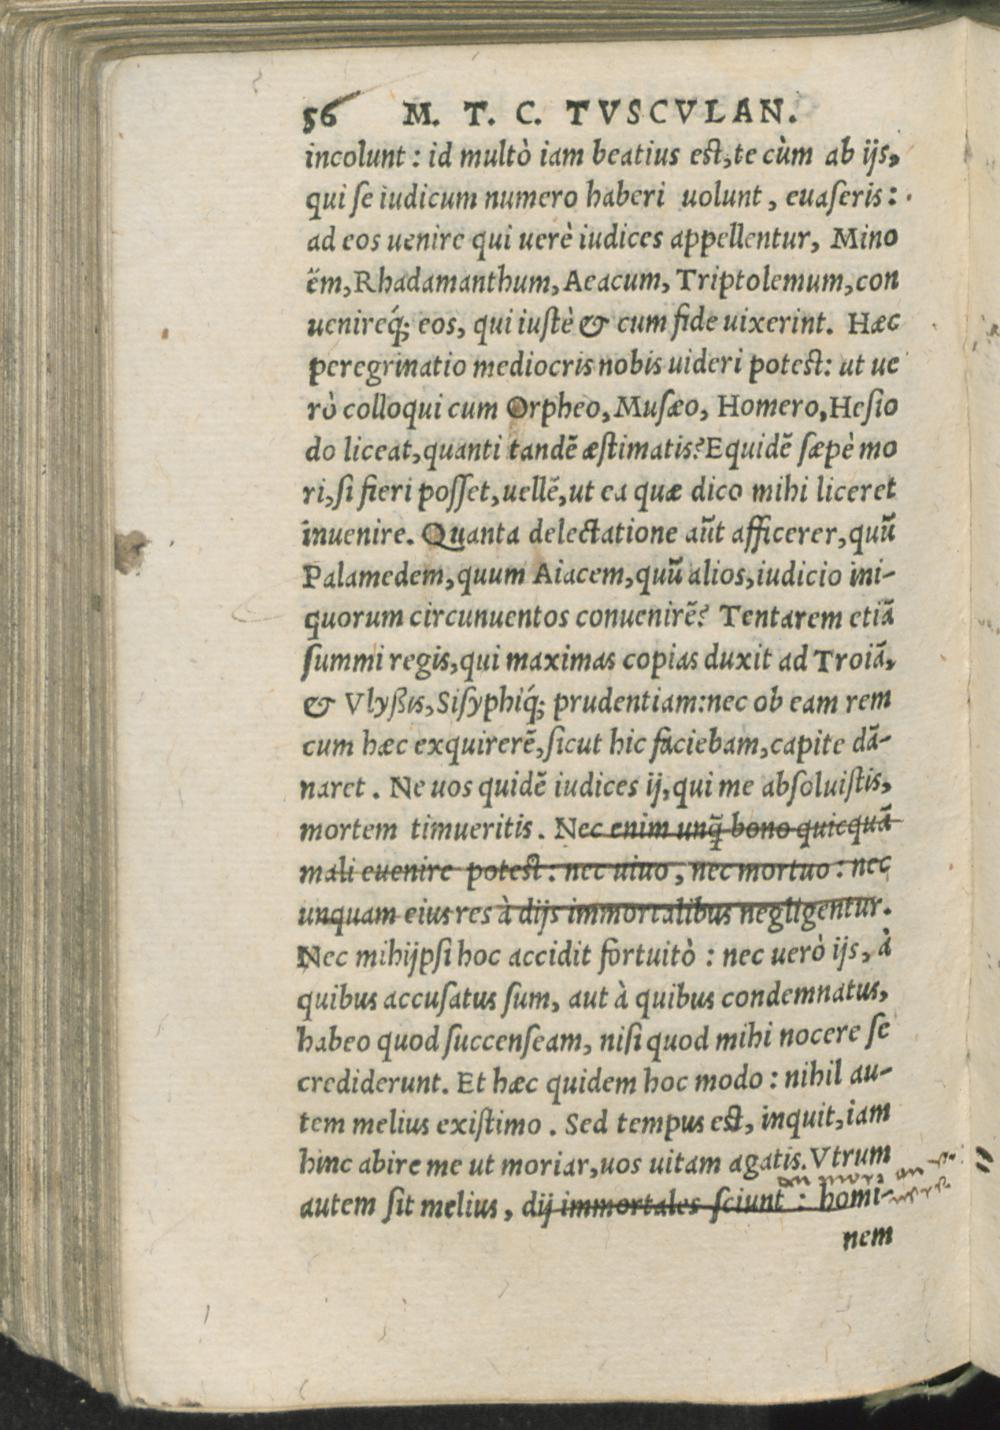 56 M. T. C. TVSCVLAN.
incolunt : id multò iam beatius est, te cùm ab ijs,
qui se iudicum numero haberi uolunt, euaseris :
ad eos uenire qui uerè iudices appellentur, Mino
ëm, Rhadamanthum, Aeacum, Triptolemum, con
uenireq́; eos, qui iustè & cum fide uixerint. Hæc
peregrinatio mediocris nobis uideri potest: ut ue
rò colloqui cum Orpheo, Musæo, Homero, Hesio
do liceat, quanti tandẽ æstimatis? Equidẽ sæpè mo
ri, si fieri posset, uellẽ, ut ea quæ dico mihi liceret
inuenire. Quanta delectatione aũt afficerer, quũ
Palamedem, quum Aiacem, quũ alios, iudicio ini-
quorum circunuentos conuenirẽ? Tentarem etiã
summi regis, qui maximas copias duxit ad Troiã,
& Vlyßis, Sisyphiq́; prudentiam: nec ob eam rem
cum hæc exquirerẽ, sicut hic faciebam, capite dã-
naret. Ne uos quidẽ iudices ij, qui me absoluistis,
mortem timueritis. Nec enim unq̃ bono quicquã
mali euenire potest : nec uiuo, nec mortuo : nec
unquam eius res à dijs immortalibus negligentur.
Nec mihi ipsi hoc accidit fortuitò : nec uerò ijs, à
quibus accusatus sum, aut à quibus condemnatus,
habeo quod succenseam, nisi quod mihi nocere se
crediderunt. Et hæc quidem hoc modo : nihil au-
tem melius existimo. Sed tempus est, inquit, iam
hinc abire me ut moriar, uos uitam agatis. Vtrum
autem sit melius, dij immortales sciunt : homi-
nem